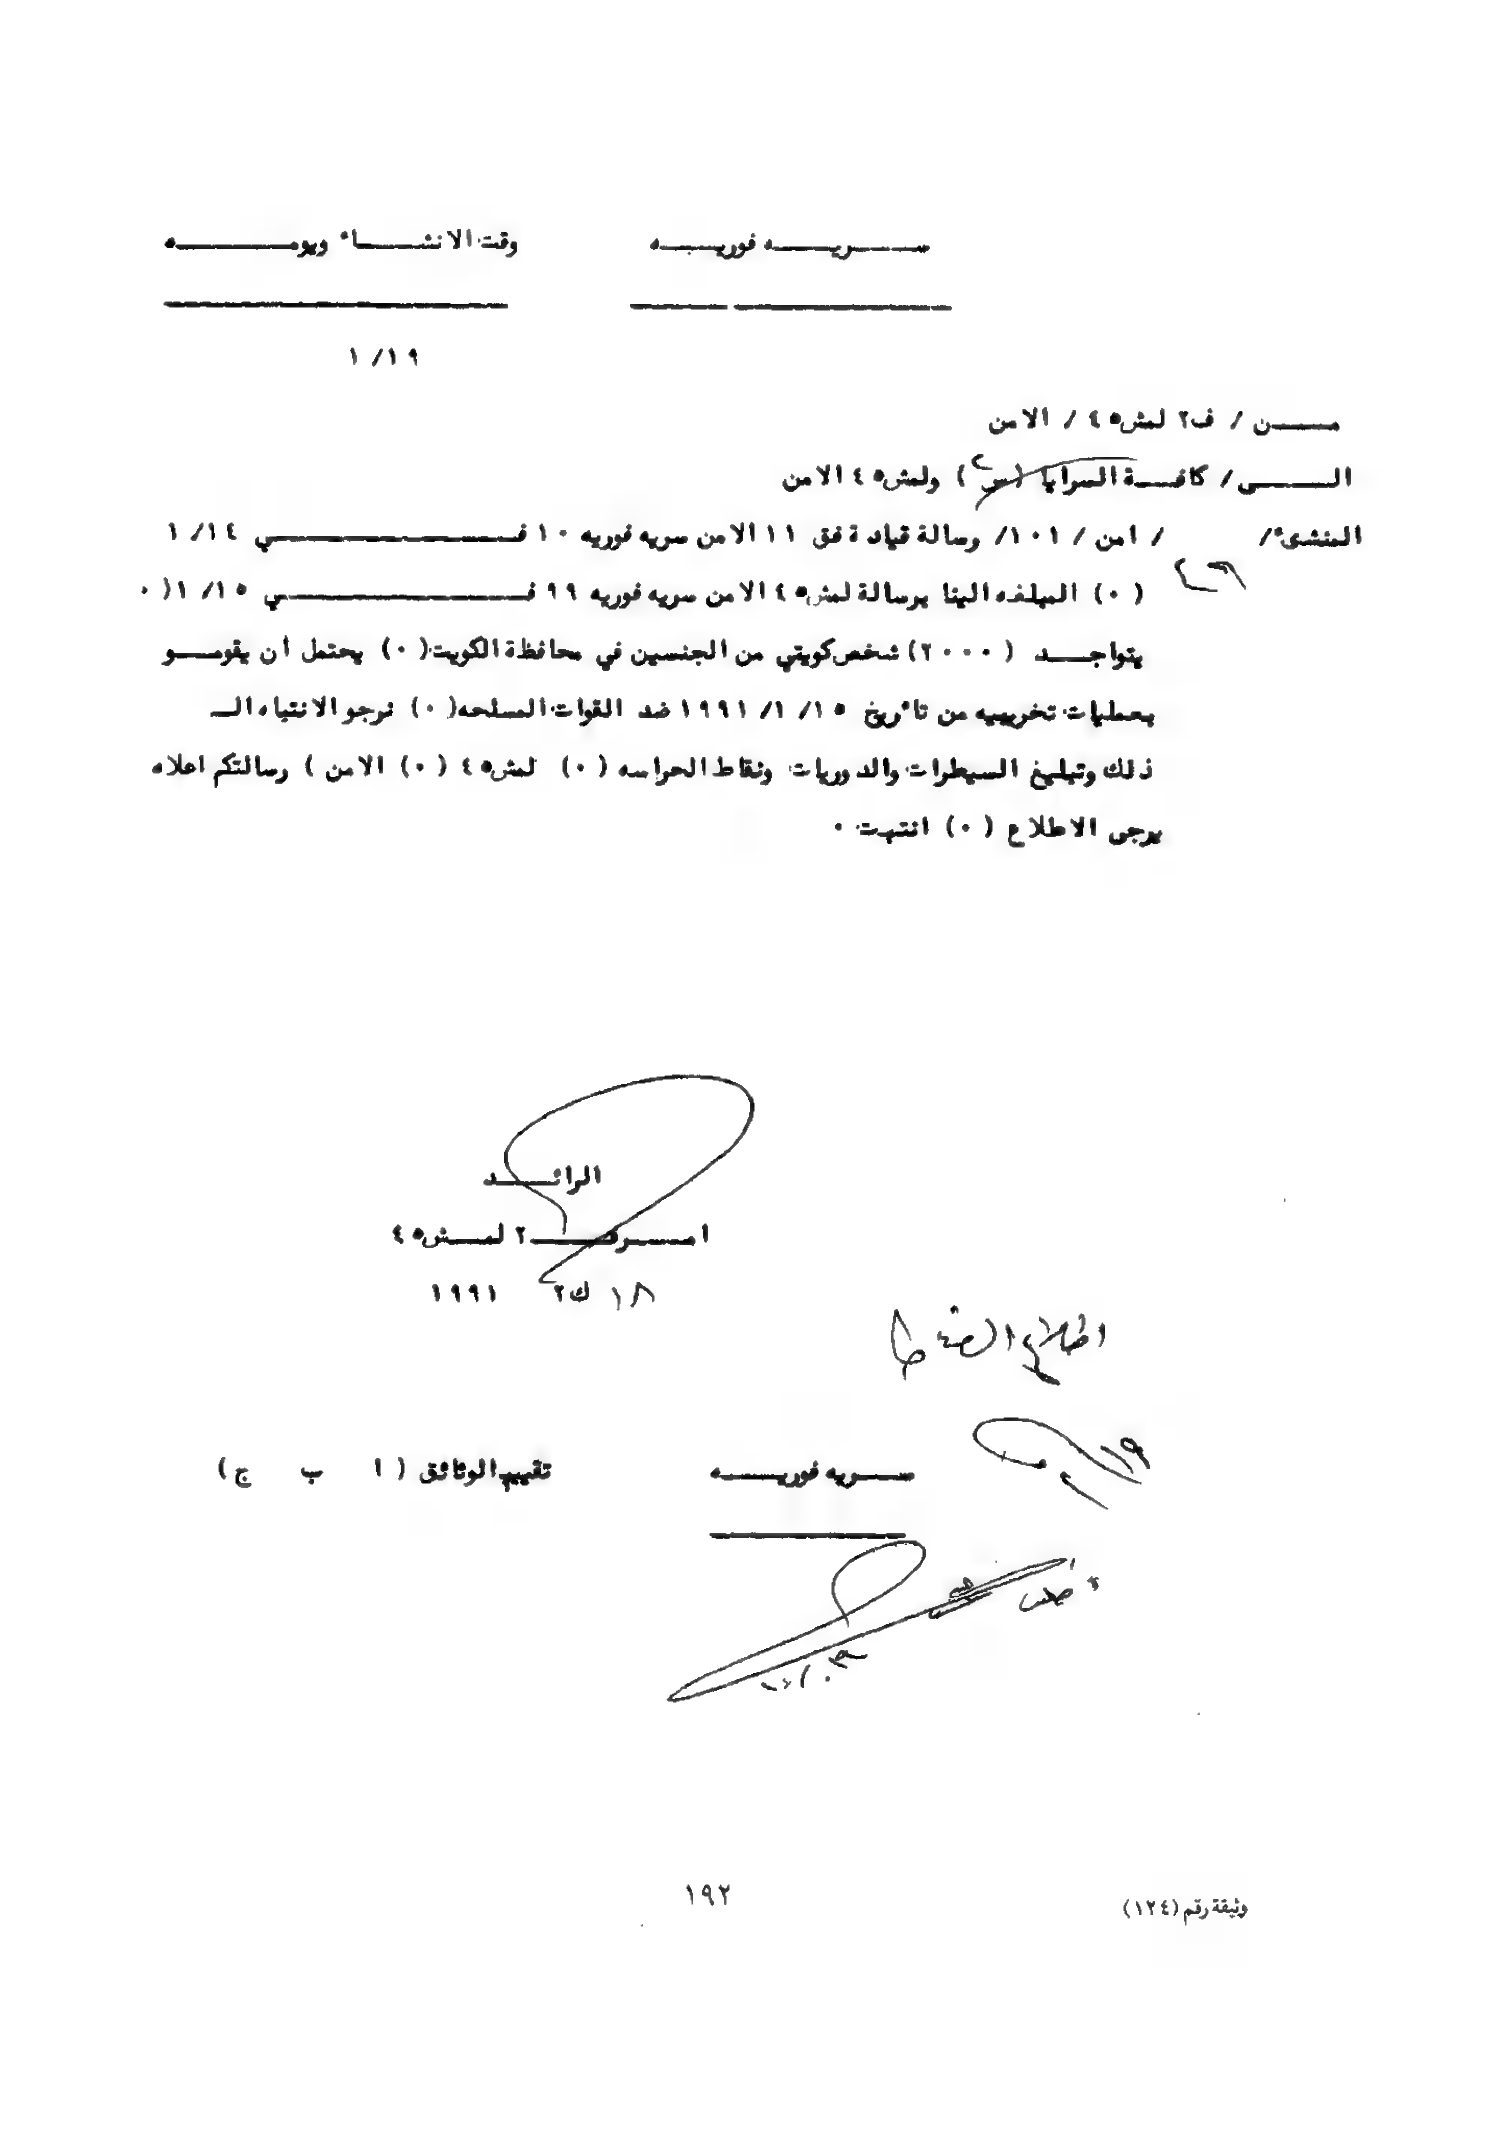 سريه فوريه وقت الانشاء ويومه
١/١٩
من / ف٢ لمش٤٥ / الامن
الى / كافة السرايا (س) ولمش٤٥ الامن
المنشىء/ / امن / ١٠١/ رسالة قيادة فق ١١ الامن سريه فوريه ١٠ في ١/١٤
(٠) المبلغه الينا برسالة لمش٤٥ الامن سريه فوريه ٩٩ في ١/١٥ (٠
يتواجد (٢٠٠٠) شخص كويتي من الجنسين في محافظة الكويت (٠) يحتمل أن يقومو
بعمليات تخريبيه من تأريخ ١٥ /١ /١٩٩١ ضد القوات المسلحه (٠) نرجو الانتباه الـ
ذلك وتبليغ السيطرات والدوريات ونقاط الحراسه (٠) لمش٤٥ (٠) الامن ) رسالتكم اعلاه
يرجى الاطلاع (٠) انتهت ٠
الرائد
امر ف٢ لمش٤٥
١٨ ك٢ ١٩٩١
اطلاع الضباط
١٩
سريه فوريه تقييم الوثائق ( ا ب ج )
١٩٢
وثيقة رقم (١٢٤)